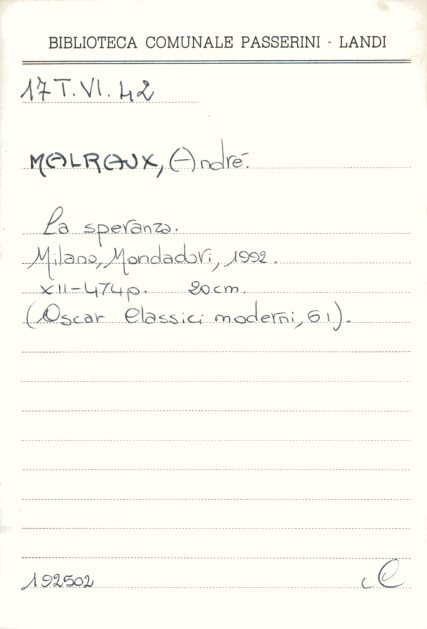 BIBLIOTECA COMUNALE PASSERINI - LANDI
17 T. VI. 42
MALRAUX, André.
La speranza.
Milano, Mondadori, 1992.
XII-474p. 20cm.
(Oscar Classici moderni, 61).
192502